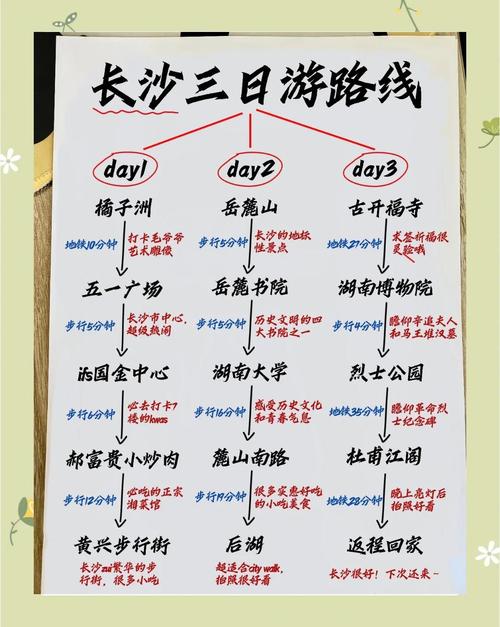 长沙三日游路线
day1
day2
day3
橘子洲
岳麓山
古开福寺
地铁10分钟
打卡毛爷爷
艺术雕像
步行5分钟
长沙的地标
性景点
地铁27分钟
求签祈福很
灵验哦
五一广场
岳麓书院
湖南博物院
步行5分钟
长沙市中心,
超级热闹
步行5分钟
历史文明的四
大书院之一
步行4分钟
瞻仰辛追夫人
和马王堆汉墓
ifs国金中心
湖南大学
烈士公园
步行6分钟
必去打卡7
楼的kaws
步行16分钟
感受历史文化
和青春气息
地铁35分钟
瞻仰革命烈
士纪念碑
郝富贵小炒肉
麓山南路
杜甫江阁
步行12分钟
必吃的正宗
湘菜馆
步行19分钟
很多实惠好吃
的小吃美食
地铁28分钟
晚上亮灯后
拍照好看
黄兴步行街
后湖
返程回家
长沙zui繁华的步
行街,很多小吃
超适合city walk,
拍照很好看
长沙很好!下次还来~